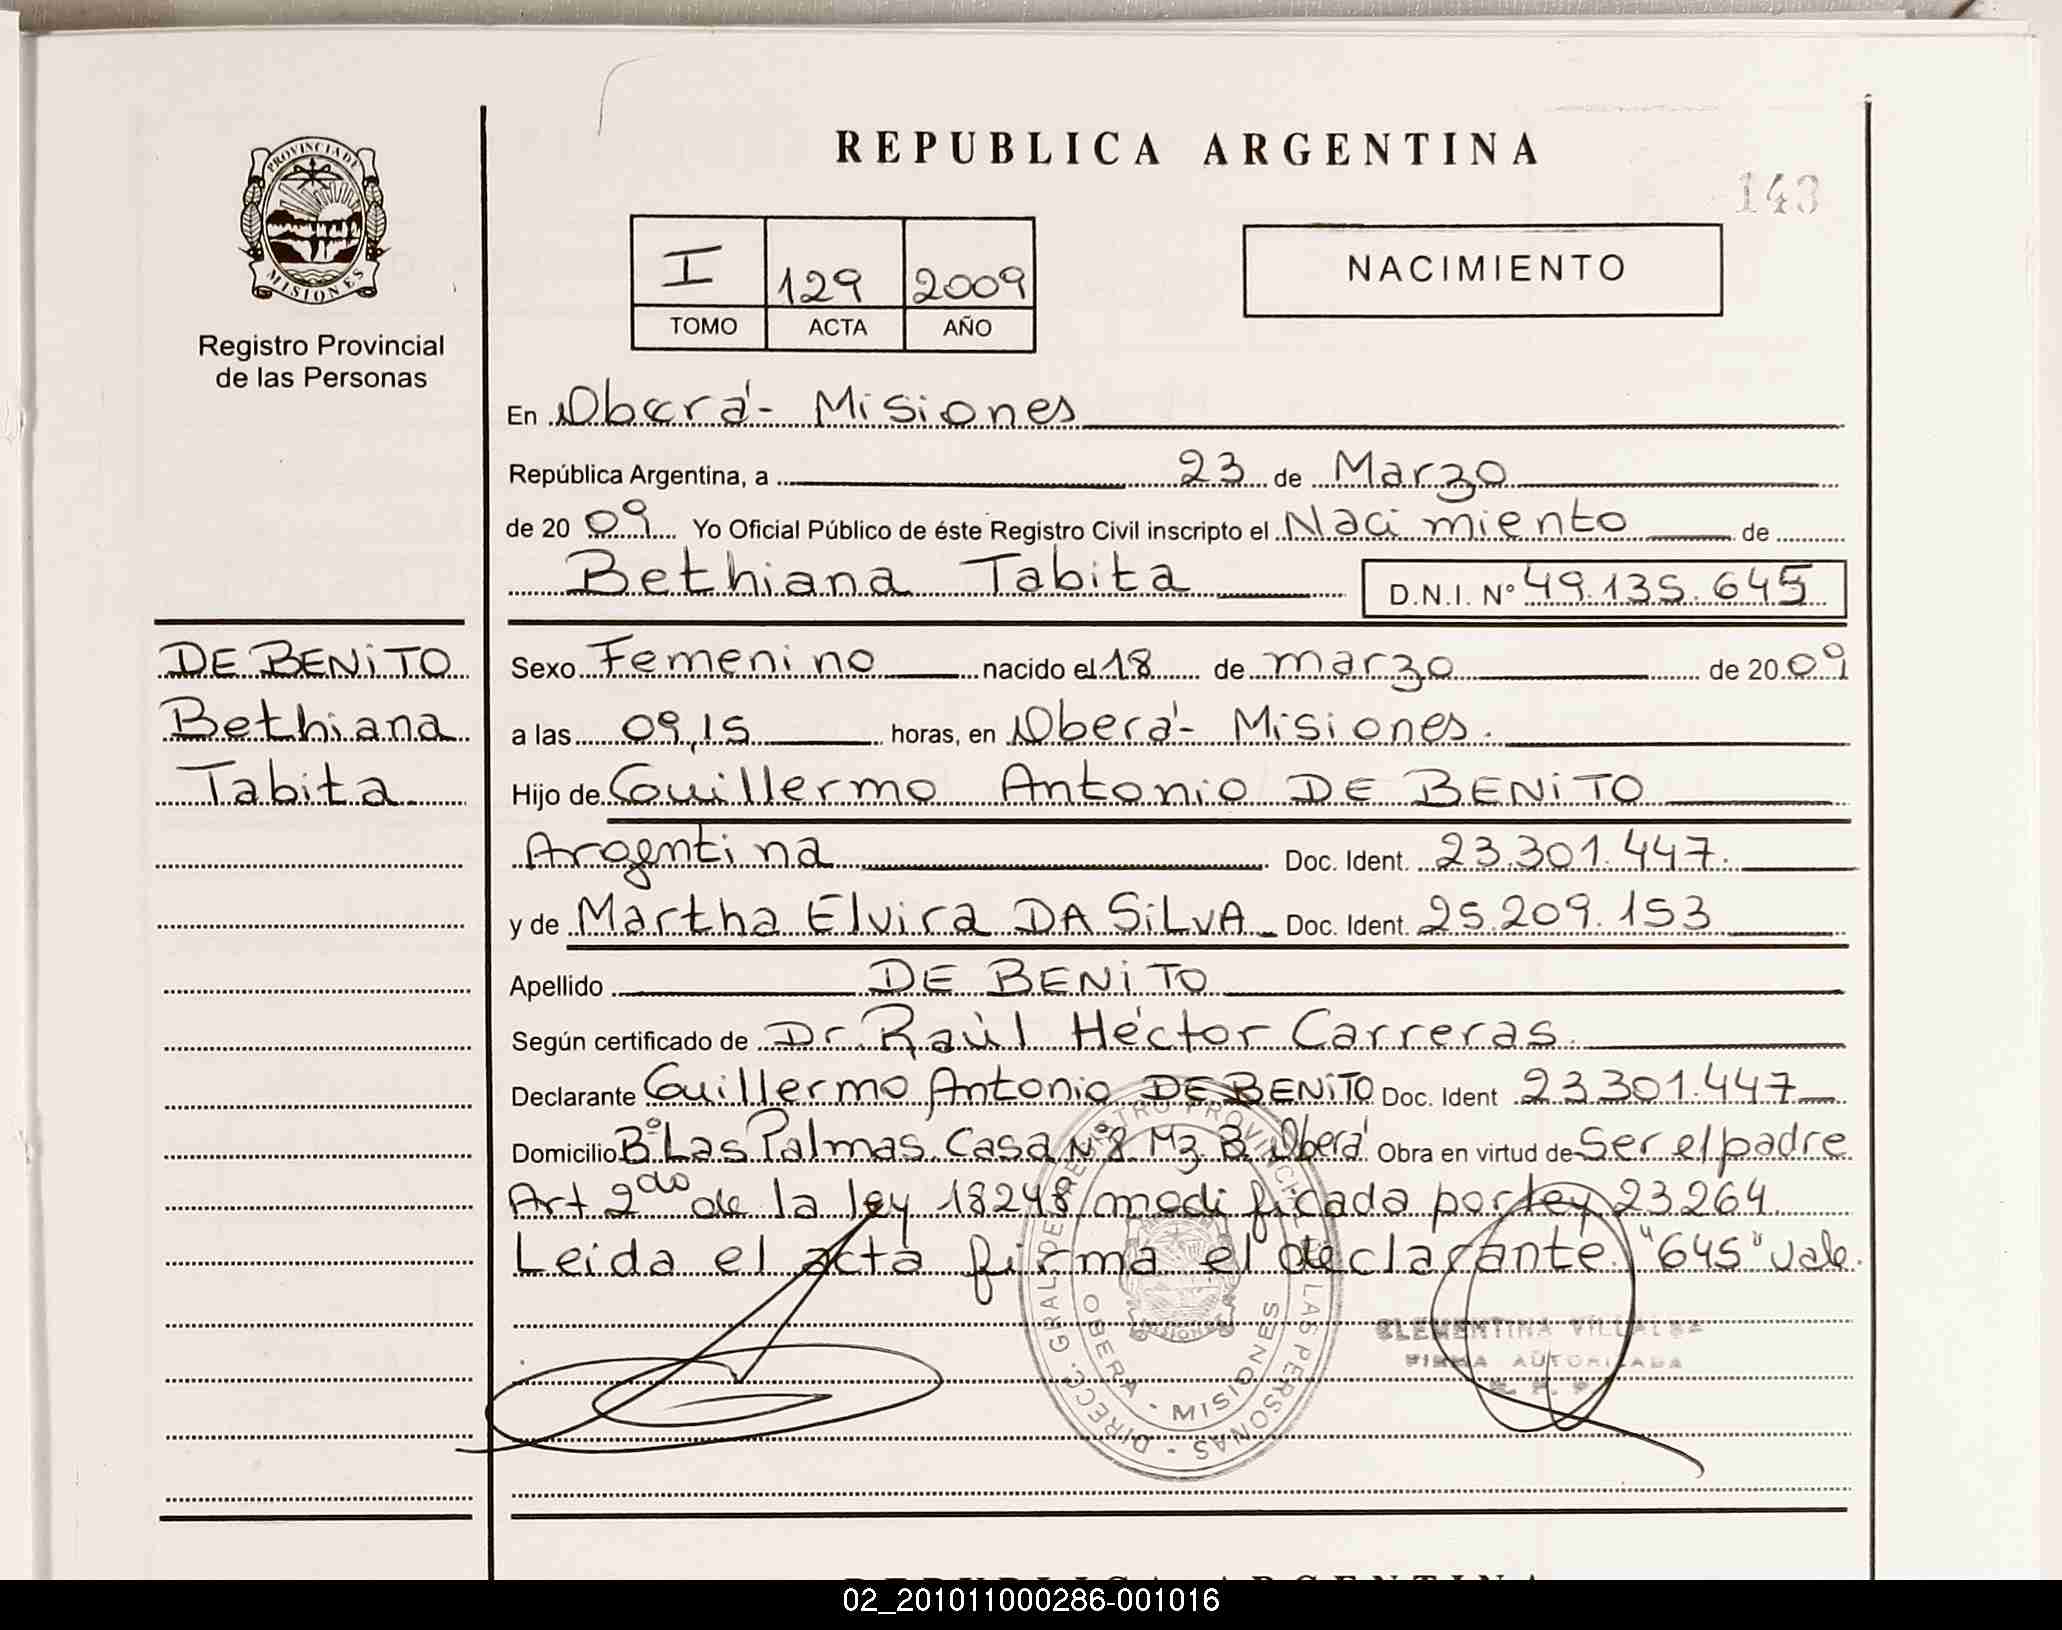 REPUBLICA ARGENTINA
143
PROVINCIA DE
MISIONES
Registro Provincial
de las Personas
I 129 2009
TOMO ACTA AÑO
NACIMIENTO
En Oberá - Misiones
República Argentina, a 23 de Marzo
de 20 09 Yo Oficial Público de éste Registro Civil inscripto el Nacimiento de
Bethiana Tabita D.N.I. N° 49.135.645
DE BENiTO
Bethiana
Tabita
Sexo Femenino nacido el 18 de marzo de 20 09
a las 09,15 horas, en Oberá - Misiones.
Hijo de Guillermo Antonio DE BENiTO
Argentina Doc. Ident. 23.301.447.
y de Martha Elvira DA SiLVA Doc. Ident. 25.209.153
Apellido DE BENiTO
Según certificado de Dr. Raúl Héctor Carreras.
Declarante Guillermo Antonio DE BENiTO Doc. Ident 23.301.447
Domicilio B° Las Palmas Casa N° 8 Mz B Oberá Obra en virtud de Ser el padre
Art 2do de la ley 18248 modificada por ley 23.264
Leida el acta firma el declarante. "645" vale.
DIRECC. GRAL DE REGISTRO PROVINCIAL DE LAS PERSONAS
OBERA - MISIONES
CLEMENTINA VILLALBA
FIRMA AUTORIZADA
REPUBLICA ARGENTINA
02_201011000286-001016